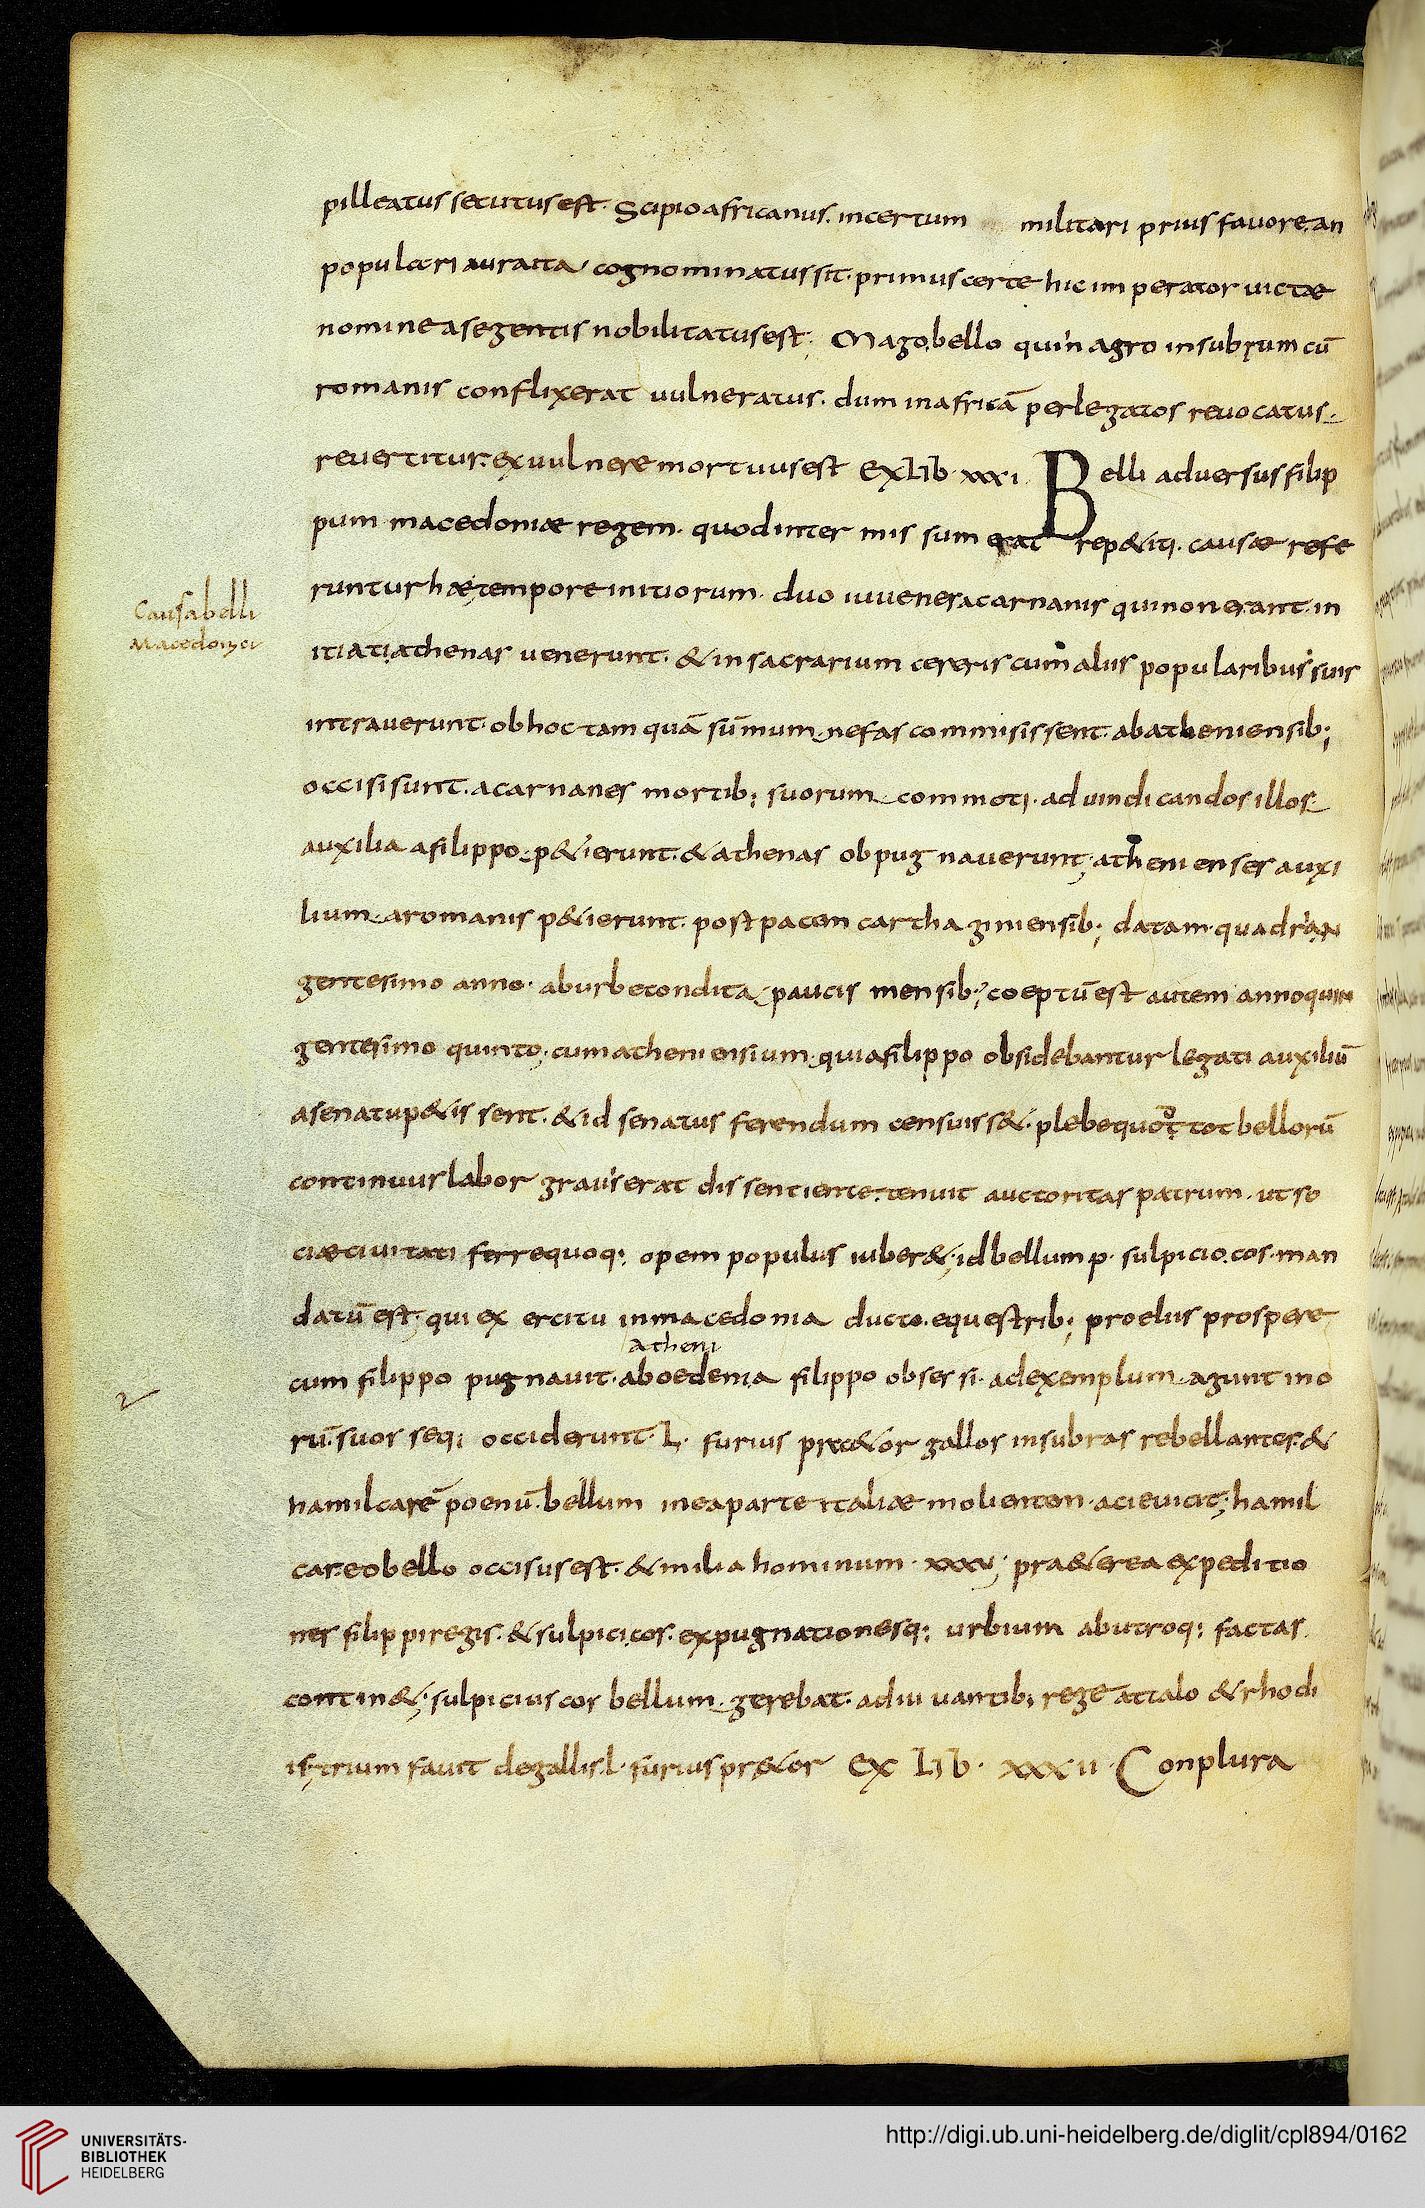 pilleatus secutus est. Scipio africanus. incertum militari prius favore. an
populari aura ita cognominatus sit. primus certe hic imperator uictae
nomine a se gentis nobilitatus est. Mago. bello quin agro insubrum cū
romanis conflixerat vulneratus. dum in africā per legatos reuocatus.
reuertitur. ex vulnere mortuus est EX LIB XXXI. Belli adversus filip
pum macedoniae regem. quod intermissum erat rep&iti. causae refe
runtur hae tempore initiorum. duo iuvenes acarnanis qui non erant in
itiati athenas venerunt. & in sacrarium cereris cum aliis popularibus suis
intraverunt. ob hoc tamquā sūmum nefas commisissent ab atheniensib;
occisi sunt. acarnanes mortib; suorum commoti. ad vindicandos illos
auxilia a filippo p&ierunt. & athenas obpugnaverunt; athenienses auxi
lium a romanis p&ierunt. post pacem carthaginiensib; datam. quadrin
gentesimo anno. ab urbe condita paucis mensib; coeptū est autem anno quin
gentesimo quinto. cum atheniensium. qui a filippo obsidebantur legati auxiliū
a senatu p&issent. & id senatus ferendum censuiss&. plebe quod tot bellorū
continuus labor gravis erat dissentiente. tenuit auctoritas patrum. ut so
ciae civitati ferre quoq; opem populus iuber&. id bellum p. sulpicio. cos. man
datū est. qui exercitu in macedonia ducto. equestrib; proeliis prospere
Atheni
cum filippo pugnavit. aboedenia filippo obsessi. ad exemplum agunt ino
rū. suos seq; occiderunt. L. furius prae&or gallos insubras rebellantes. &
hamilcarē poenū. bellum in ea parte italiae molientem. acie vicit; hamil
car. eo bello occisus est. & milia hominum. xxxv; pra&erea expeditio
nes filippi regis. & sulpici. cos. expugnationesq; urbium ab utroq; factas
contin&. sulpicius cos bellum gerebat. adiuvantib; rege attalo & rhodi
is. trium favit de gallis. l. furius pr&or EX LIB. XXXII. Conplura
Causa belli
Macedonici
UNIVERSITÄTS-
BIBLIOTHEK
HEIDELBERG
http://digi.ub.uni-heidelberg.de/diglit/cpl894/0162